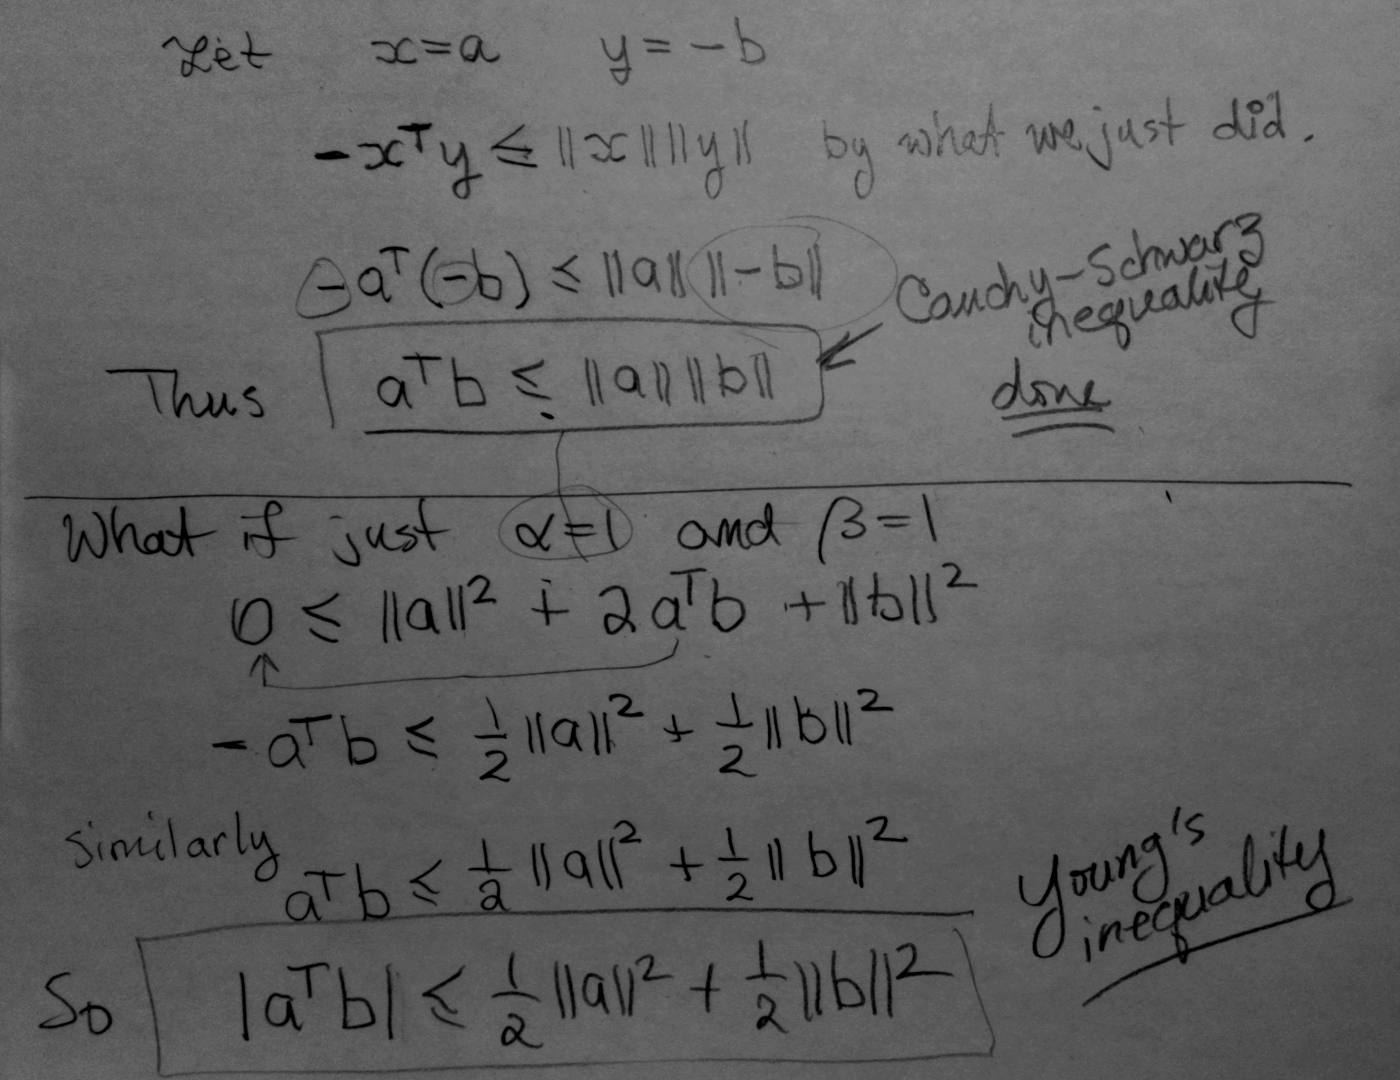 Let x=a y=-b
-xᵀy ≤ ||x|| ||y|| by what we just did.
-aᵀ(-b) ≤ ||a|| ||-b||
Cauchy-Schwarz
inequality
Thus aᵀb ≤ ||a|| ||b||
done
What if just α=1 and β=1
0 ≤ ||a||² + 2aᵀb + ||b||²
-aᵀb ≤ 1/2 ||a||² + 1/2 ||b||²
similarly aᵀb ≤ 1/2 ||a||² + 1/2 ||b||²
Young's
inequality
So |aᵀb| ≤ 1/2 ||a||² + 1/2 ||b||²